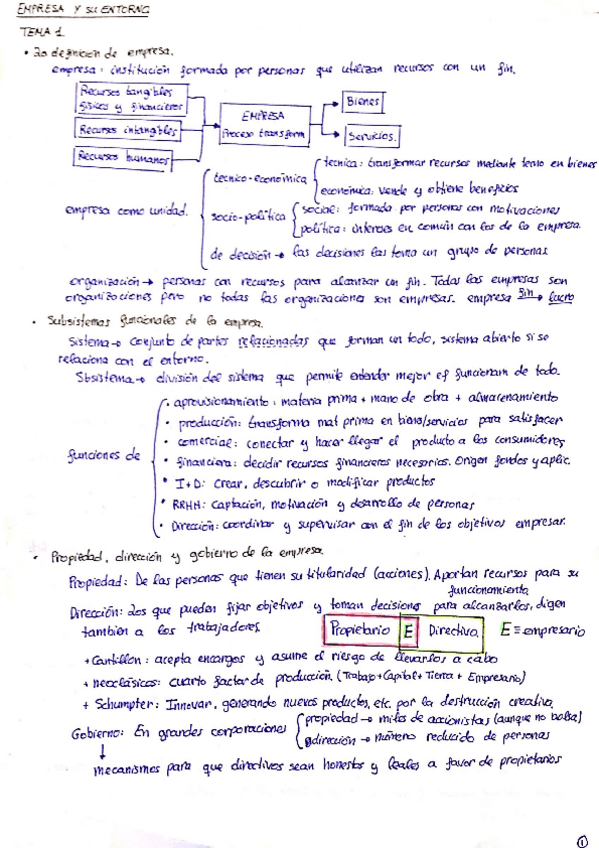 EMPRESA Y SU ENTORNO
TEMA 1.
• 2o definición de empresa.
empresa: institución formada por personas que utilizan recursos con un fin.
Recursos tangibles
físicos y financieros
Recursos intangibles
Recursos humanos
EMPRESA
Proceso transform
Bienes
Servicios.
empresa como unidad.
tecnico-económica
técnica: transformar recursos mediante tecno en bienes
económica: vende y obtiene beneficios
socio-política
social: formada por personas con motivaciones
política: intereses en común con los de la empresa.
de decisión → las decisiones las toma un grupo de personas
organización → personas con recursos para alcanzar un fin. Todas las empresas son
organizaciones pero no todas las organizaciones son empresas. empresa fin → lucro
• Subsistemas funcionales de la empresa.
Sistema → Conjunto de partes relacionadas que forman un todo, sistema abierto si se
relaciona con el entorno.
Sbsistema → división del sistema que permite entender mejor el funcionam de todo.
funciones de
• aprovisionamiento: materia prima + mano de obra + almacenamiento
• producción: transforma mat prima en biens/servicios para satisfacer
• comercial: conectar y hacer llegar el producto a los consumidores
• financiera: decidir recursos financieros necesarios. Origen fondos y aplic.
• I+D: Crear, descubrir o modificar productos
• RRHH: Captación, motivación y desarrollo de personas
• Dirección: coordinar y supervisar con el fin de los objetivos empresar.
• Propiedad, dirección y gobierno de la empresa.
Propiedad: De las personas que tienen su titularidad (acciones). Aportan recursos para su
funcionamiento.
Dirección: Los que pueden fijar objetivos y toman decisions para alcanzarlos, digen
también a los trabajadores.
Propietario E Directiva E ≡ empresario
+ Cantillon: acepta encargos y asume el riesgo de llevarlos a cabo
+ neoclásicos: cuarto factor de producción. (Trabajo + Capital + Tierra + Empresario)
+ Schumpter: Innovar, generando nuevos productos, etc. por la destrucción creativa.
Gobierno: En grandes corporaciones
propiedad → miles de accionistas (aunque no bolsa)
dirección → número reducido de personas
↓
mecanismos para que directivos sean honestos y leales a favor de propietarios
1